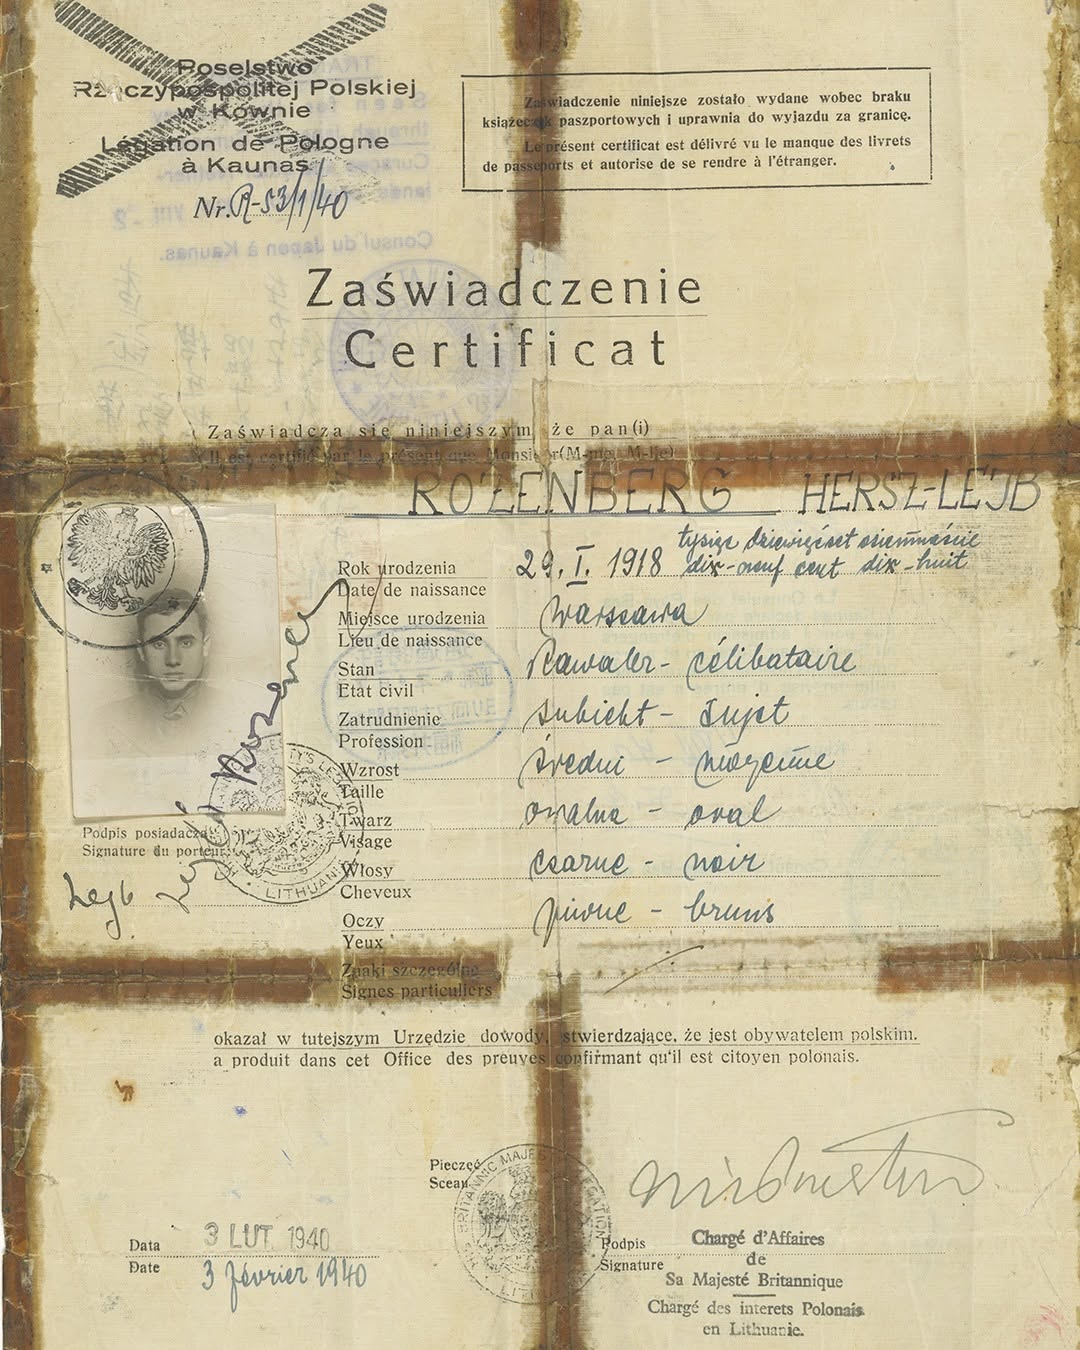 Poselstwo
Rzeczypospolitej Polskiej
w Kownie
Légation de Pologne
à Kaunas
Nr. R-53/1/40
Zaświadczenie niniejsze zostało wydane wobec braku
książeczek paszportowych i uprawnia do wyjazdu za granicę.
Le présent certificat est délivré vu le manque des livrets
de passeports et autorise de se rendre à l'étranger.
Consul du Japon à Kaunas.
Zaświadczenie
Certificat
Zaświadcza się niniejszym, że pan(i)
Il est certifié par le présent que Monsieur(M-me, M-lle)
ROZENBERG HERSZ-LEJB
Rok urodzenia 29. I. 1918 tysiąc dziewięćset osiemnaście
Date de naissance dix-neuf cent dix-huit
Miejsce urodzenia Warszawa
Lieu de naissance
Stan Kawaler - célibataire
Etat civil
Zatrudnienie
Profession
Wzrost średni -
Taille
Twarz owalna - oval
Visage
Włosy czarne - noir
Cheveux
Oczy piwne - bruns
Yeux
Znaki szczególne
Signes particuliers
Podpis posiadacza:
Signature du porteur:
Lejb
LITHUANIA
okazał w tutejszym Urzędzie dowody, stwierdzające, że jest obywatelem polskim.
a produit dans cet Office des preuves confirmant qu'il est citoyen polonais.
Pieczęć
Sceau
BRITANNIC MAJESTY'S LEGATION
Data 3 LUT 1940
Date 3 février 1940
Podpis
Signature
Chargé d'Affaires
de
Sa Majesté Britannique
Chargé des interets Polonais
en Lithuanie.